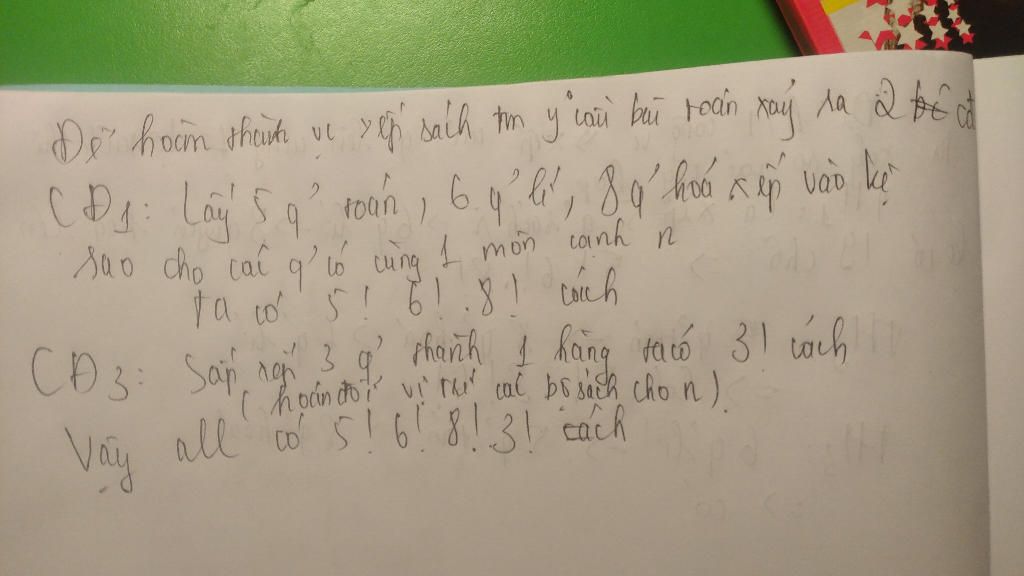 Để hoàn thành vc xếp sách tm y' cầu bài toán xảy ra 2 cđ
CĐ1: Lấy 5 q' toán, 6 q' lí, 8 q' hoá xếp vào kệ
sao cho các q' có cùng 1 môn cạnh n
ta có 5! 6! . 8! cách
CĐ3: Sắp xếp 3 q' thành 1 hàng ta có 3! cách
( hoán đổi vị trí các bộ sách cho n ).
Vậy all có 5! 6! 8! .3! cách